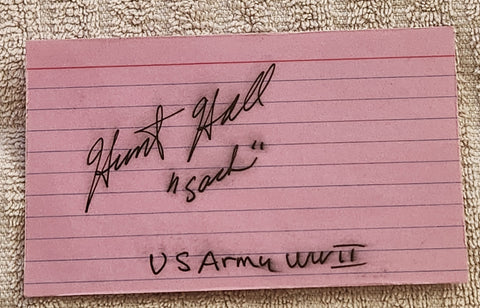 Huntz Hall
"Sach"
US Army WWII